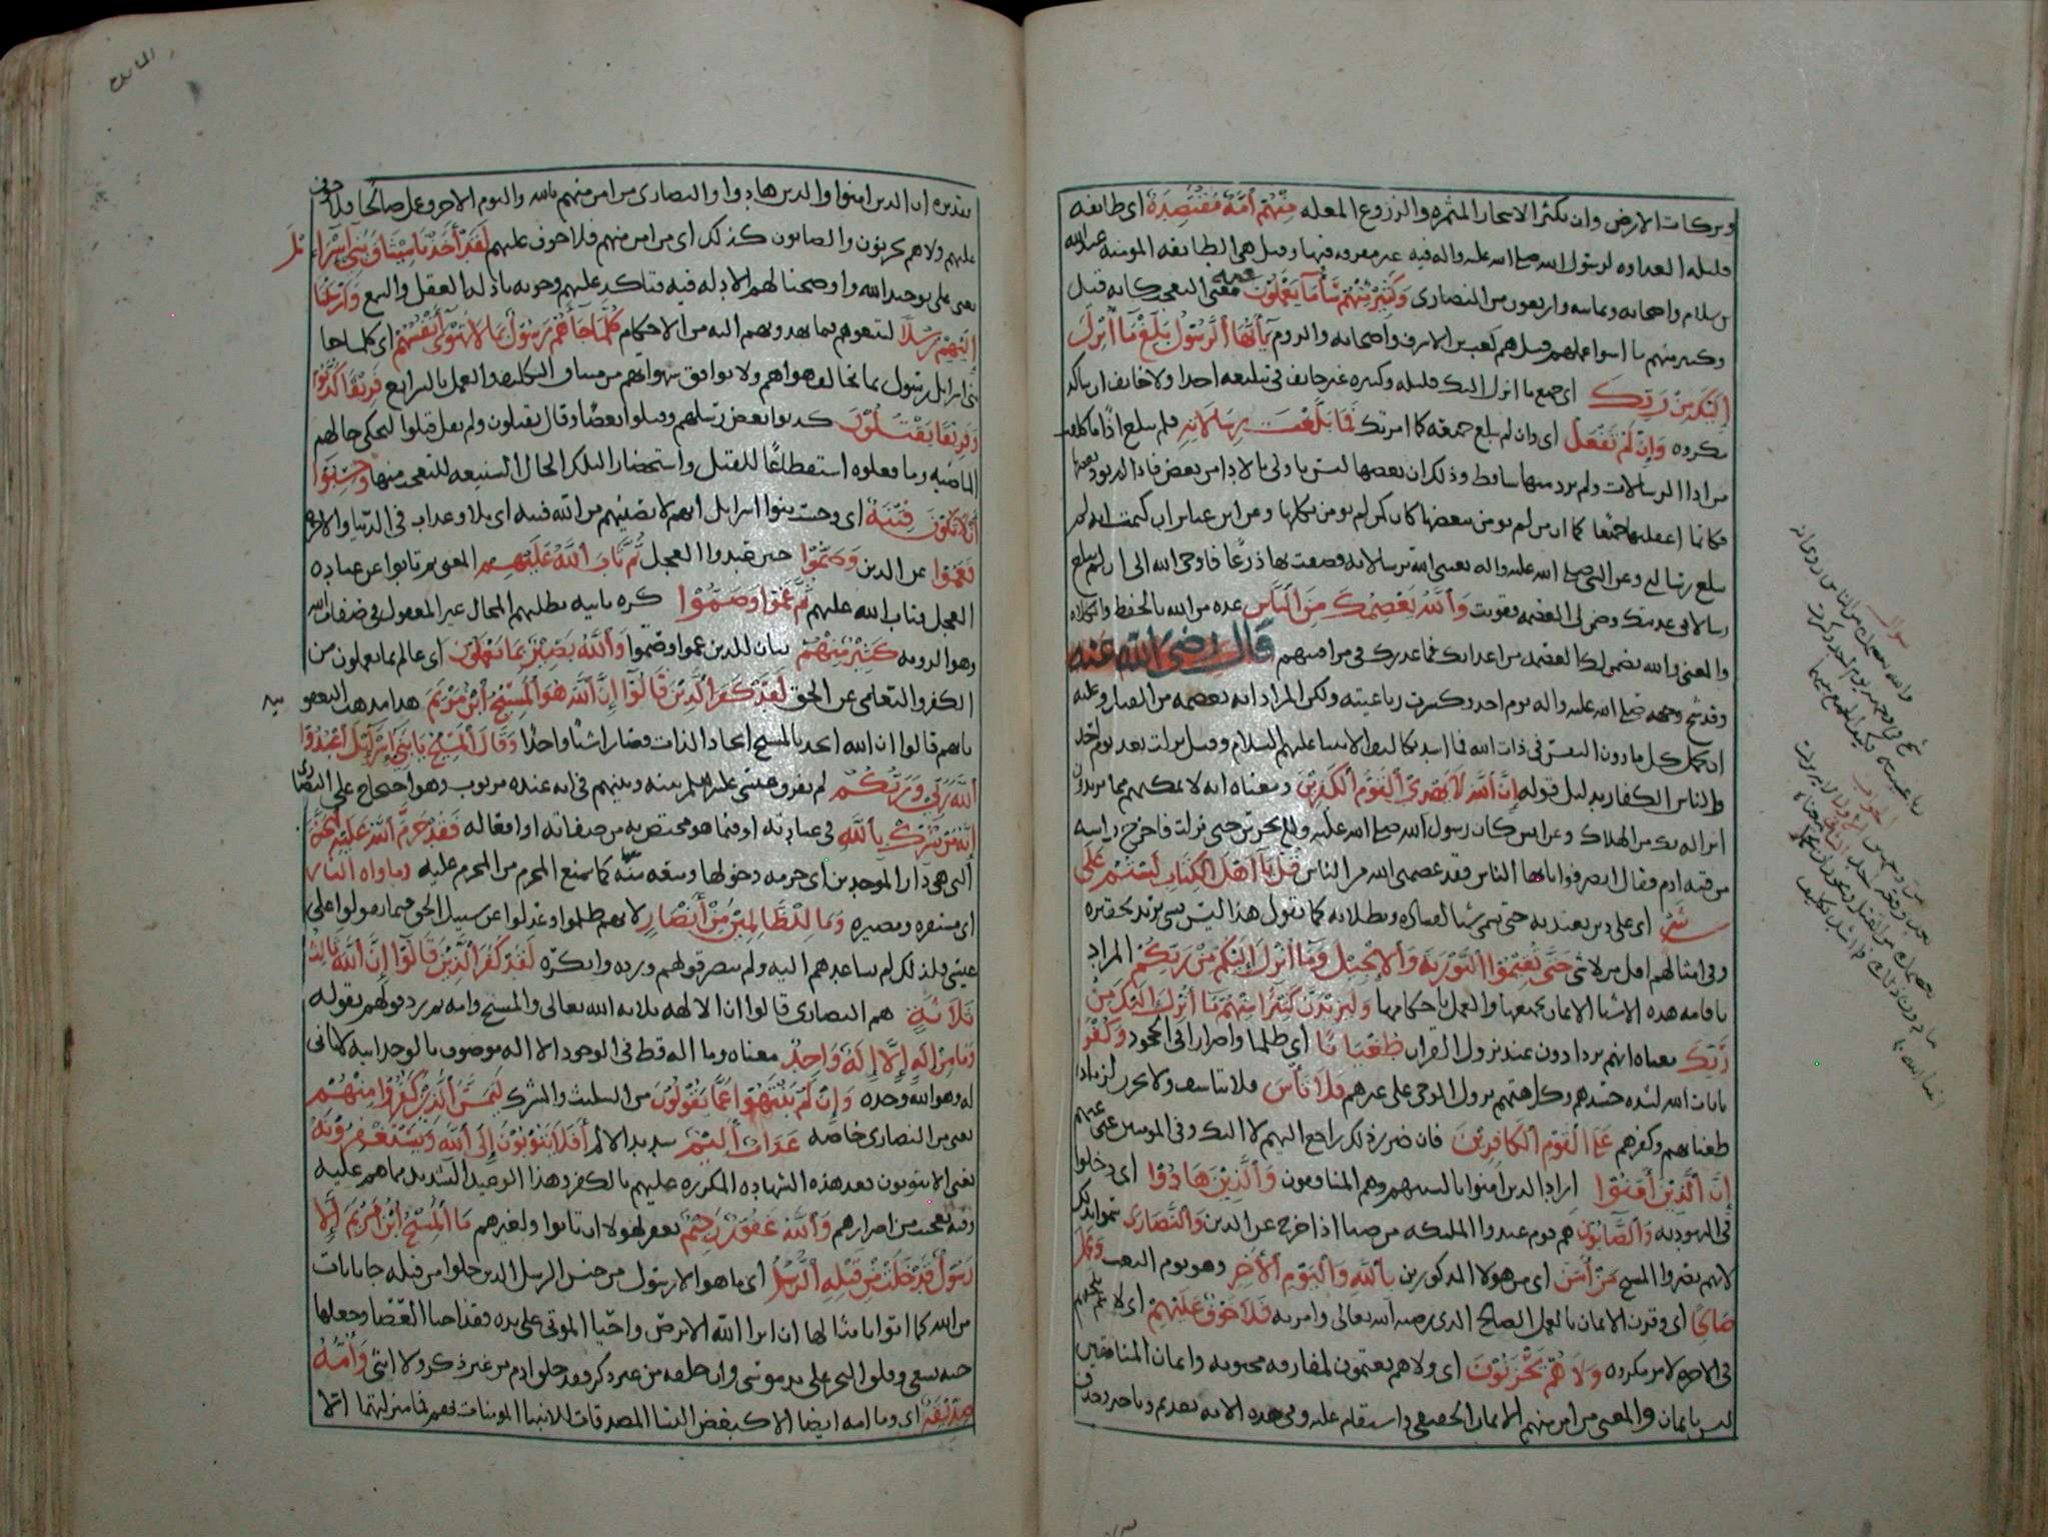 وبركات الارض وان يكثر الاشجار المثمره والزروع المغله مِنْهُمْ أُمَّةٌ مُقْتَصِدَةٌ اى طائفه
قليله العداوه لرسول الله صلى الله عليه واله فيه غير مفرقه فيها وقيل هى الطائفه المومنه عبد الله
بن سلام واصحابه وثمانيه واربعون من النصارى وَكَثِيرٌ مِنْهُمْ سَاءَ مَا يَعْمَلُونَ فيه معنى التعجب كانه قيل
وكثير منهم ما اسوا عملهم وقيل هم كعب بن الاشرف واصحابه والروم يَا أَيُّهَا الرَّسُولُ بَلِّغْ مَا أُنْزِلَ
إِلَيْكَ مِنْ رَبِّكَ اى جميع ما انزل اليك قليله وكثيره غير خائف فى تبليغه احدا ولا خائف ان ينالك
مكروه وَإِنْ لَمْ تَفْعَلْ اى وان لم تبلغ جميعه كما امرتك فَمَا بَلَّغْتَ رِسَالَاتِهِ فلم تبلغ اذًا ما كلفت
من ادا الرسالات ولم تود منها ساقط وذلك ان بعضها ليس باولى بالادا من بعض فاذا لم تود بعضها
فكانما اغفلتها جميعا كما ان من لم يومن ببعضها كان كمن لم يومن بكلها وعن ابن عباس ان كتمت ايه لم
تبلغ رسالتى وعن النبى صلى الله عليه واله بعثنى الله برسالاته وضقت بها ذرعًا فاوحى الله الى ان لم تبلغ
رسالاتى عذبتك وضمن لى العصمه فقويت وَاللَّهُ يَعْصِمُكَ مِنَ النَّاسِ عده من الله بالحفظ والكلاه
والمعنى والله يضمن لك العصمه من اعدائك فما عذرك فى مراقبتهم قال رضى الله عنه
وقد شج وجهه صلى الله عليه واله يوم احد وكسرت رباعيته ولكن المراد انه يعصمه من القتل وعليه
ان يحتمل كل ما دون النفس فى ذات الله فما اشد تكاليف الانبيا عليهم السلام وقيل نزلت بعد يوم احد
والناس الكفار بدليل قوله إِنَّ اللَّهَ لَا يَهْدِي الْقَوْمَ الْكَافِرِينَ ومعناه انه لا يمكنهم مما يريدون
انزاله بك من الهلاك وعن انس كان رسول الله صلى الله عليه وسلم يحرس حتى نزلت فاخرج راسه
من قبه ادم فقال انصرفوا يايها الناس فقد عصمنى الله من الناس قُلْ يَا أَهْلَ الْكِتَابِ لَسْتُمْ عَلَى
شَيْءٍ اى على دين يعتد به حتى يسمى شيا لفساده وبطلانه كما تقول هذا ليس بشى تريد تحقيره
وفى امثالهم اقل من لاشى حَتَّى تُقِيمُوا التَّوْرَاةَ وَالْإِنْجِيلَ وَمَا أُنْزِلَ إِلَيْكُمْ مِنْ رَبِّكُمْ المراد
باقامه هذه الاشيا الايمان بجميعها والعمل باحكامها وَلَيَزِيدَنَّ كَثِيرًا مِنْهُمْ مَا أُنْزِلَ إِلَيْكَ مِنْ
رَبِّكَ معناه انهم يزدادون عند نزول القران طُغْيَانًا اى ظلما واصرارا فى الجحود وَكُفْرًا
بايات الله لشده حسدهم وكراهتهم نزول الوحى على غيرهم فَلَا تَأْسَ فلا تتاسف ولا تحزن لزياده
طغيانهم وكفرهم عَلَى الْقَوْمِ الْكَافِرِينَ فان ضرر ذلك راجع اليهم لا اليك وفى المومنين غنى عنهم
إِنَّ الَّذِينَ آمَنُوا اراد الذين امنوا بالسنتهم وهم المنافقون وَالَّذِينَ هَادُوا اى دخلوا
فى اليهوديه وَالصَّابِئُونَ هم قوم عبدوا الملائكه من صبا اذا خرج عن الدين وَالنَّصَارَى سموا بذلك
لانهم نصروا المسيح مَنْ آمَنَ اى من هولا المذكورين بِاللَّهِ وَالْيَوْمِ الْآخِرِ وهو يوم البعث وَعَمِلَ
صَالِحًا اى وقرن الايمان بالعمل الصالح الذى يرضيه الله تعالى وامر به فَلَا خَوْفٌ عَلَيْهِمْ اى لا غم يلحقهم
فى الاخره لامر مكروه وَلَا هُمْ يَحْزَنُونَ اى ولا هم يغتمون لمفارقه محبوبه وايمان المنافقين
ليس بايمان والمعنى من امن منهم الايمان الحقيقى واستقام عليه وفى هذه الايه تقديم وتاخير وحذف
سوال
الجواب
المائده
تقديره ان الذين امنوا والذين هادوا والنصارى من امن منهم بالله واليوم الاخر وعمل صالحا فلا خوف
عليهم ولا هم يحزنون والصابون كذلك اى من امن منهم فلا خوف عليهم لَقَدْ أَخَذْنَا مِيثَاقَ بَنِي إِسْرَائِيلَ
يعنى على توحيد الله واوضحنا لهم الادله فيه فتاكد عليهم وجوبه بادله العقل والسمع وَأَرْسَلْنَا
إِلَيْهِمْ رُسُلًا لتدعوهم بما يهدونهم اليه من الاحكام كُلَّمَا جَاءَهُمْ رَسُولٌ بِمَا لَا تَهْوَى أَنْفُسُهُمْ اى كلما جا
بنى اسرايل رسول بما يخالف هواهم ولا يوافق شهواتهم من مشاق التكليف والعمل بالشرايع فَرِيقًا كَذَّبُوا
وَفَرِيقًا يَقْتُلُونَ كذبوا بعض رسلهم وقتلوا بعضا وقال يقتلون ولم يقل قتلوا ليحكى حالهم
الماضيه وما فعلوه استفظاعًا للقتل واستحضارا لتلك الحال الشنيعه للتعجب منها وَحَسِبُوا
أَلَّا تَكُونَ فِتْنَةٌ اى وحسب بنوا اسرايل انهم لا يصيبهم من الله فتنه اى بلا وعذاب فى الدنيا والاخره
فَعَمُوا عن الدين وَصَمُّوا حين عبدوا العجل ثُمَّ تَابَ اللَّهُ عَلَيْهِمْ المعنى ثم تابوا عن عباده
العجل فتاب الله عليهم ثُمَّ عَمُوا وَصَمُّوا كره ثانيه بطلبهم المحال غير المعقول فى صفات الله
وهو الرويه كَثِيرٌ مِنْهُمْ بيان للذين عموا وصموا وَاللَّهُ بَصِيرٌ بِمَا يَعْمَلُونَ اى عالم بما يعملون من
الكفر والتعامى عن الحق لَقَدْ كَفَرَ الَّذِينَ قَالُوا إِنَّ اللَّهَ هُوَ الْمَسِيحُ ابْنُ مَرْيَمَ هذا مذهب اليعقوبيه
بانهم قالوا ان الله اتحد بالمسيح اتحاد الذات فصارا شيا واحدا وَقَالَ الْمَسِيحُ يَا بَنِي إِسْرَائِيلَ اعْبُدُوا
اللَّهَ رَبِّي وَرَبَّكُمْ لم يفرق عيسى عليه السلم بينه وبينهم فى انه عبد مربوب وهو احتجاج على النصارى
إِنَّهُ مَنْ يُشْرِكْ بِاللَّهِ فى عبادته او فيما هو مختص به من صفاته او افعاله فَقَدْ حَرَّمَ اللَّهُ عَلَيْهِ الْجَنَّةَ
التى هى دار الموحدين اى حرمه دخولها ومنعه منه كما يمنع المحرم من المحرم عليه وماواه النار
اى مستقره ومصيره وَمَا لِلظَّالِمِينَ مِنْ أَنْصَارٍ لانهم ظلموا وعدلوا عن سبيل الحق فيما تقولوا على
عيسى فلذلك لم يساعدهم اليه ولم ينصر قولهم ورده وانكره لَقَدْ كَفَرَ الَّذِينَ قَالُوا إِنَّ اللَّهَ ثَالِثُ
ثَلَاثَةٍ هم النصارى قالوا ان الالهه ثلاثه الله تعالى والمسيح وامه ثم رد قولهم بقوله
وَمَا مِنْ إِلَهٍ إِلَّا إِلَهٌ وَاحِدٌ معناه وما اله قط فى الوجود الا اله موصوف بالوحدانيه لا ثانى
له وهو الله وحده وَإِنْ لَمْ يَنْتَهُوا عَمَّا يَقُولُونَ من التثليث والشرك لَيَمَسَّنَّ الَّذِينَ كَفَرُوا مِنْهُمْ
يعنى من النصارى خاصه عَذَابٌ أَلِيمٌ شديد الالم أَفَلَا يَتُوبُونَ إِلَى اللَّهِ وَيَسْتَغْفِرُونَهُ
يعنى الا يتوبون بعد هذه الشهاده المكرره عليهم بالكفر وهذا الوعيد الشديد مما هم عليه
وفيه تعجب من اصرارهم وَاللَّهُ غَفُورٌ رَحِيمٌ يغفر لهولا ان تابوا ولغيرهم مَا الْمَسِيحُ ابْنُ مَرْيَمَ إِلَّا
رَسُولٌ قَدْ خَلَتْ مِنْ قَبْلِهِ الرُّسُلُ اى ما هو الا رسول من جنس الرسل الذين خلوا من قبله جا بايات
من الله كما اتوا بامثالها ان ابرا الله الابرص واحيا الموتى على يده فقد احيا العصا وجعلها
حيه تسعى وفلق البحر على يد موسى وان خلقه من غير ذكر فقد خلق ادم من غير ذكر ولا انثى وَأُمُّهُ
صِدِّيقَةٌ اى وما امه ايضا الا كبعض النسا المصدقات للانبيا المومنات بهم فما منزلتهما الا